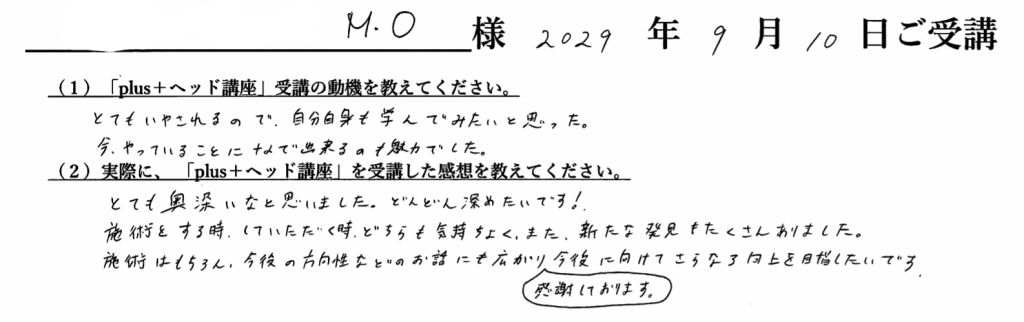 M.O 様 2029年 9月 10日ご受講
(1)「plus+ヘッド講座」受講の動機を教えてください。
とてもいやされるので、自分自身も学んでみたいと思った。
今、やっていることに+αで出来るのも魅力でした。
(2)実際に、「plus+ヘッド講座」を受講した感想を教えてください。
とても奥深いなと思いました。どんどん深めたいです!
施術をする時、していただく時、どちらも気持ちよく、また、新たな発見もたくさんありました。
施術はもちろん、今後の方向性などのお話にも広がり今後に向けてさらなる向上を目指したいです。
感謝しております。